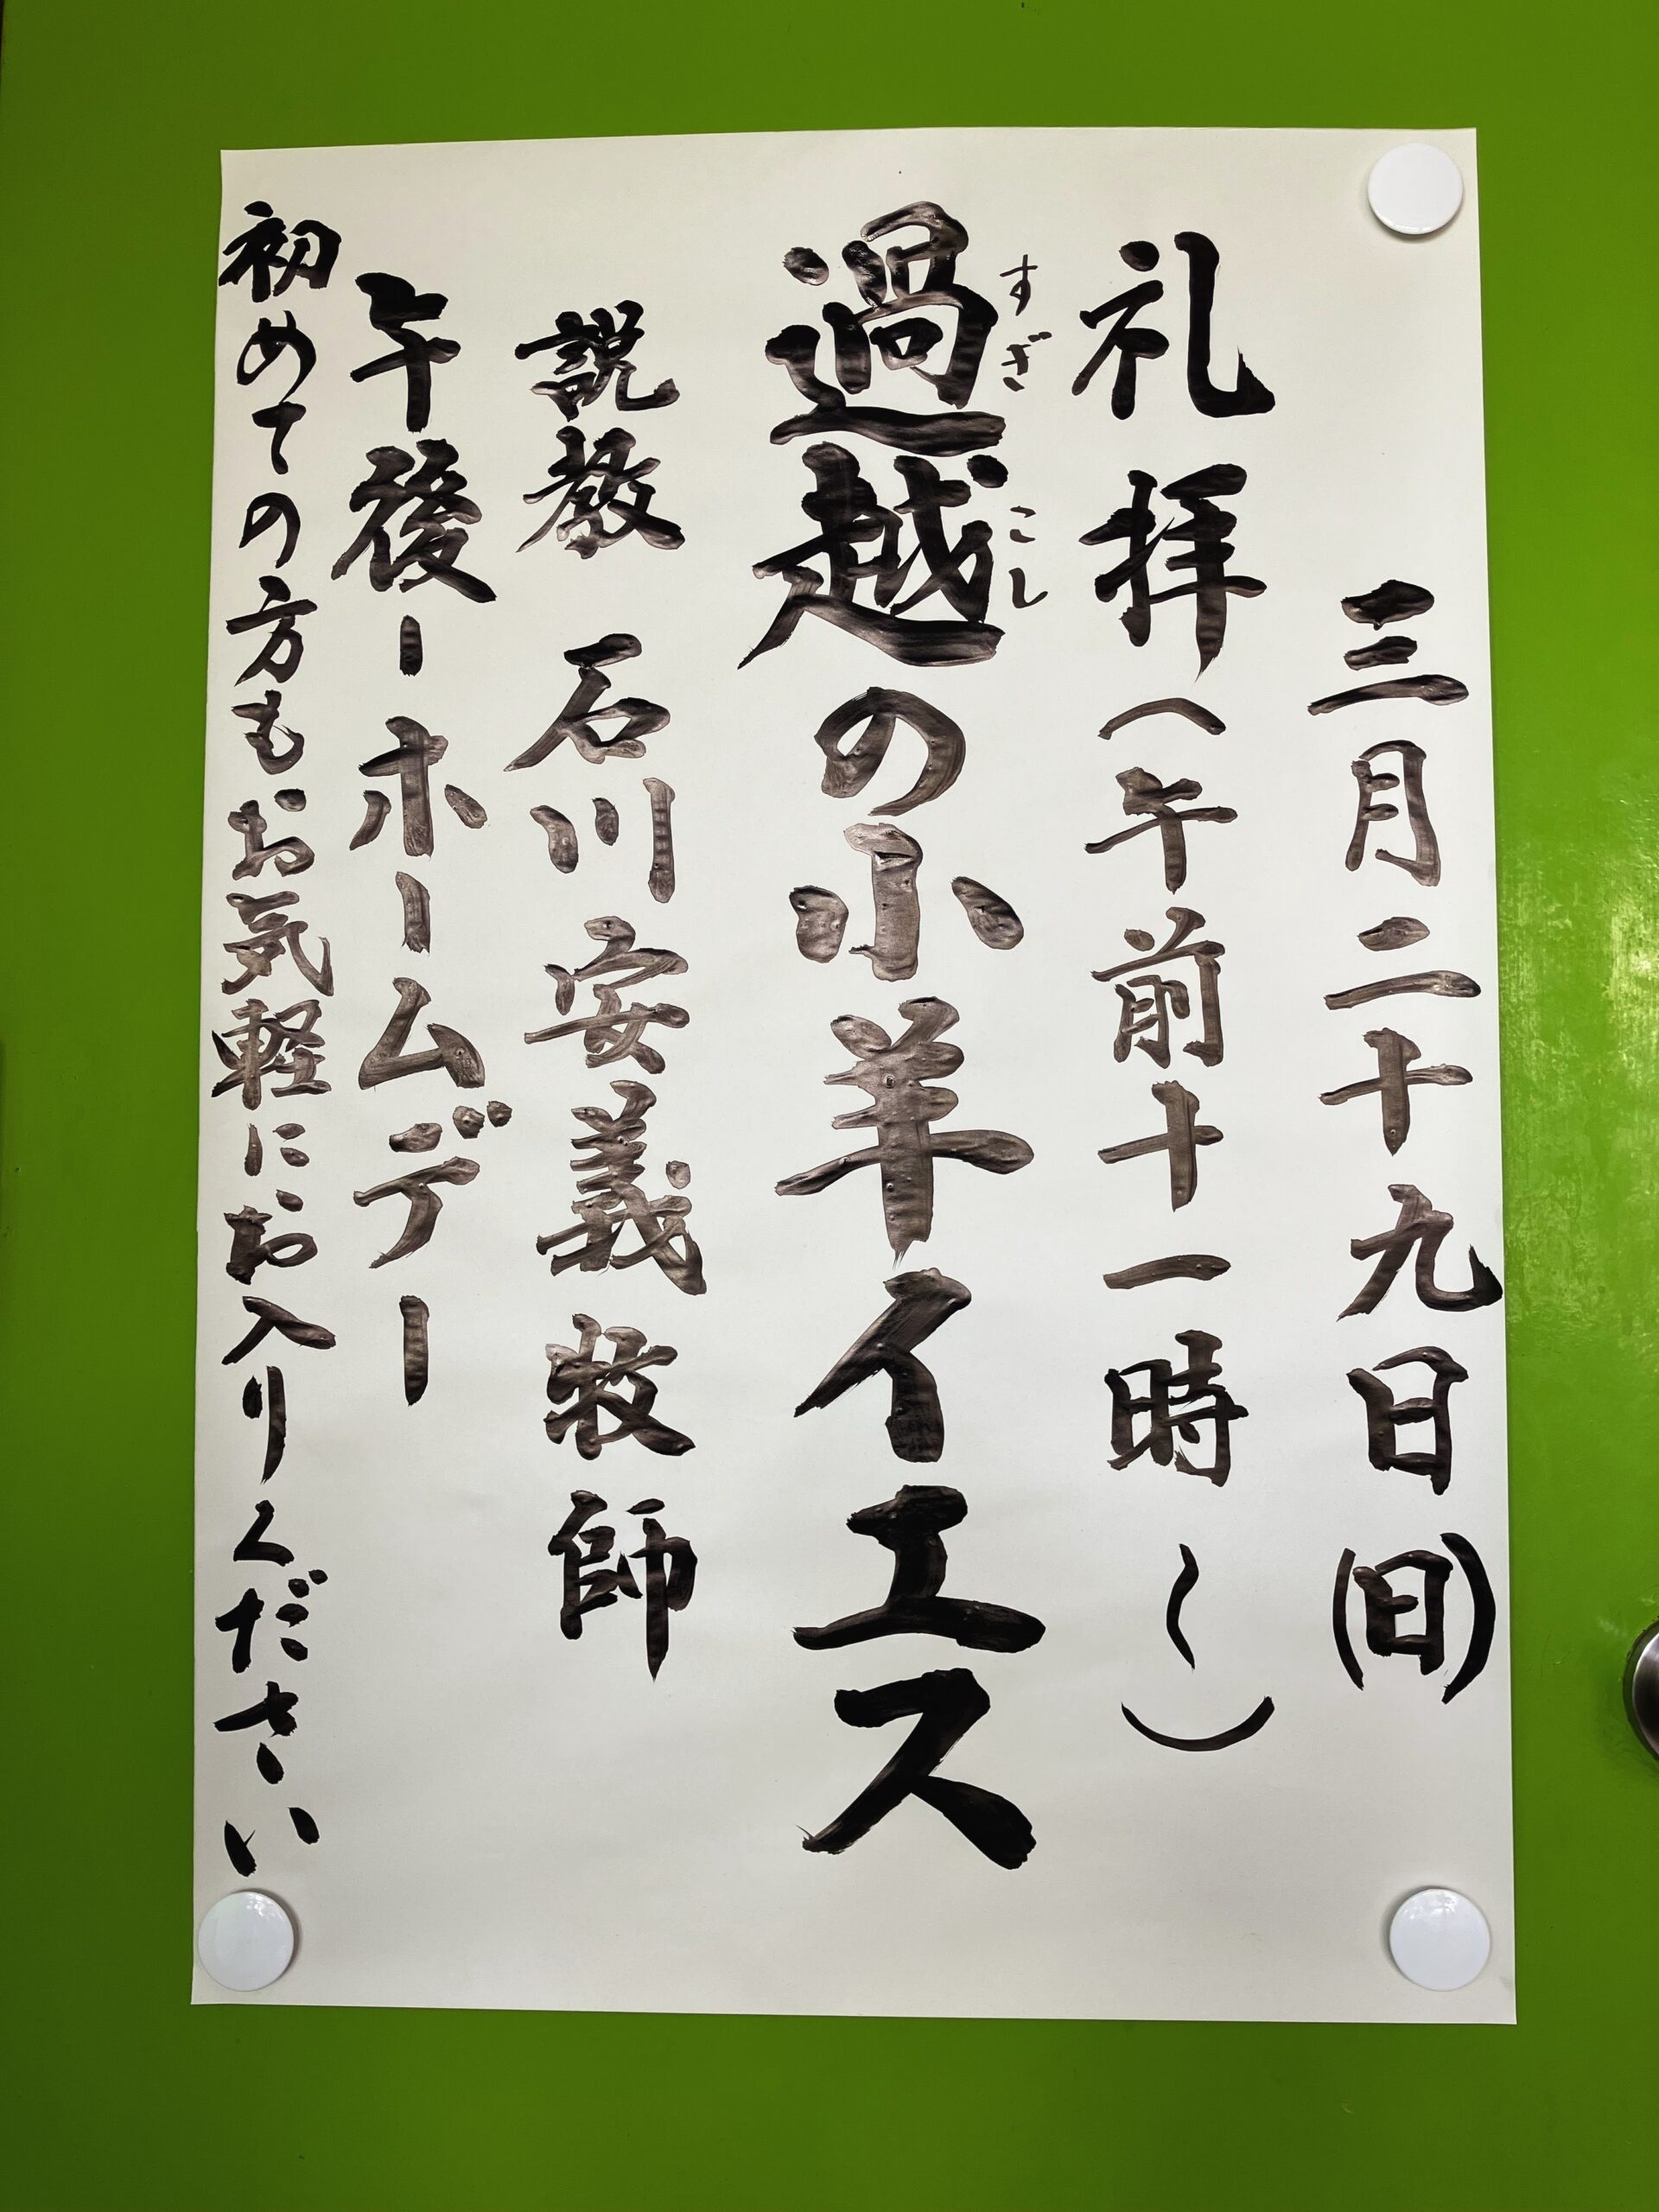 三月二十九日(日)
礼拝(午前十一時〜)
過越の小羊イエス
すぎこし
説教 石川安義牧師
午後ーホームデー
初めての方もお気軽にお入りください